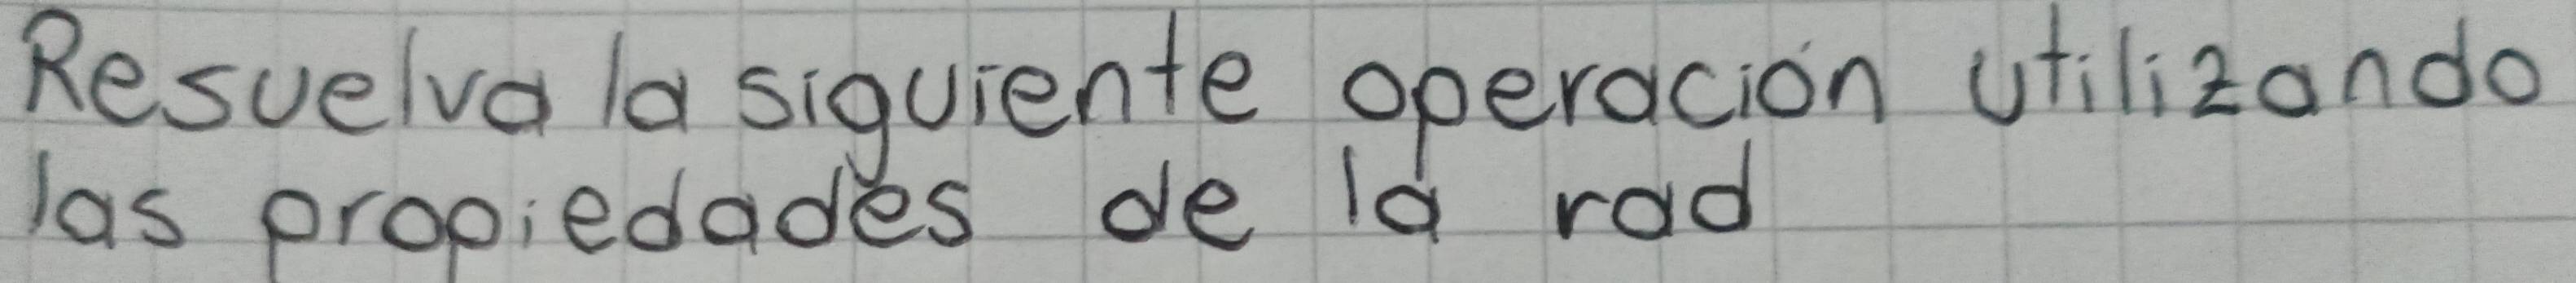 Resuelva la siguiente operación utilizando
las propiedades de la rad